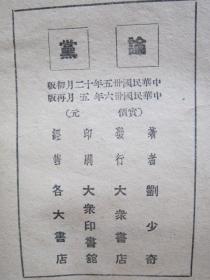 論黨
中華民國卅五年十二月初版
中華民國卅六年五月再版
(實價 元)
著者 劉少奇
發行 大衆書店
印刷 大衆印書館
經售 各大書店